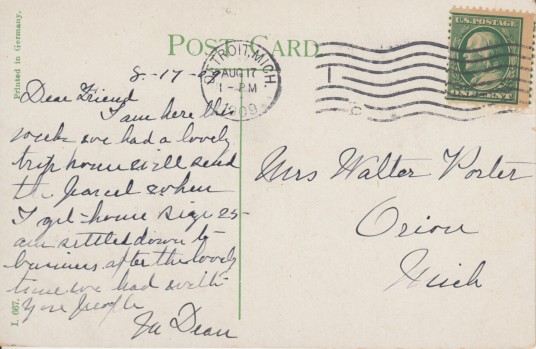 Printed in Germany.
POST CARD
DETROIT, MICH.
AUG 17
1 - PM
1909
U.S. POSTAGE
ONE CENT
8-17-09
Dear Friend
I am here this
week we had a lovely
trip home will send
the parcel when
I get home
am settled down to
business after the lovely
time we had with
you people
Dean
Mrs Walter Porter
Orion
Mich
I. 667.